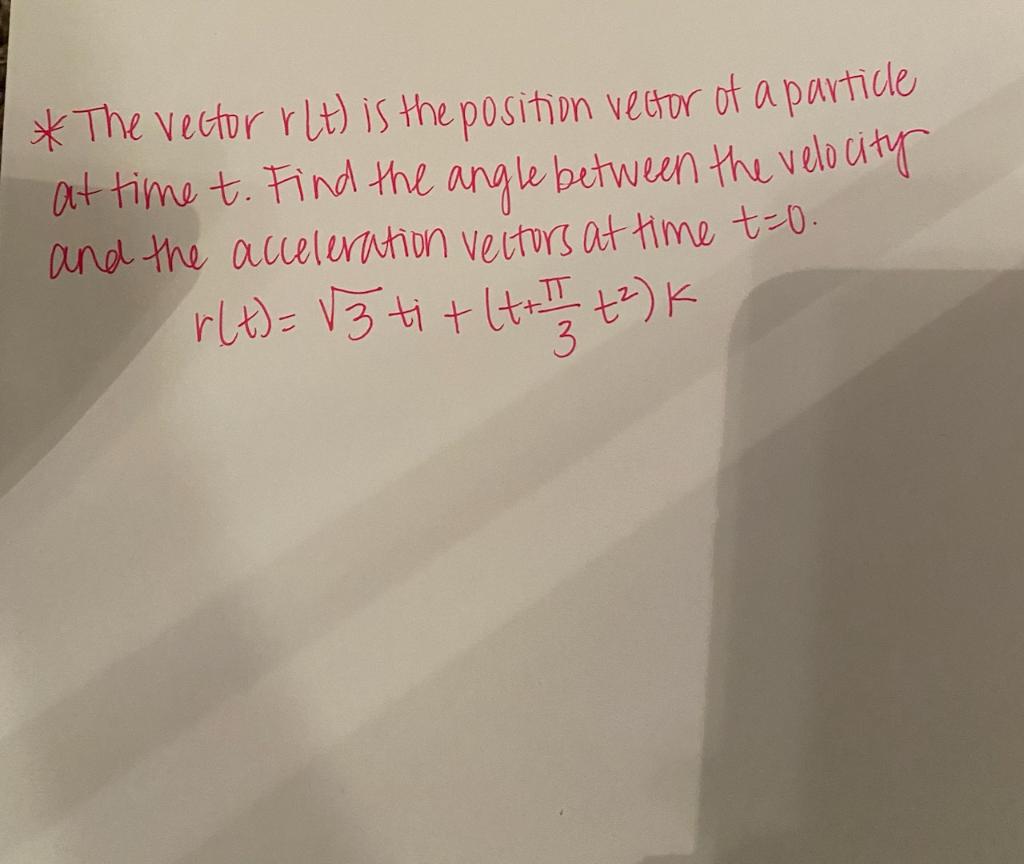 * The vector r(t) is the position vector of a particle
at time t. Find the angle between the velocity
and the acceleration vectors at time t=0.
r(t)= √3 ti + (t+π/3 t²) K